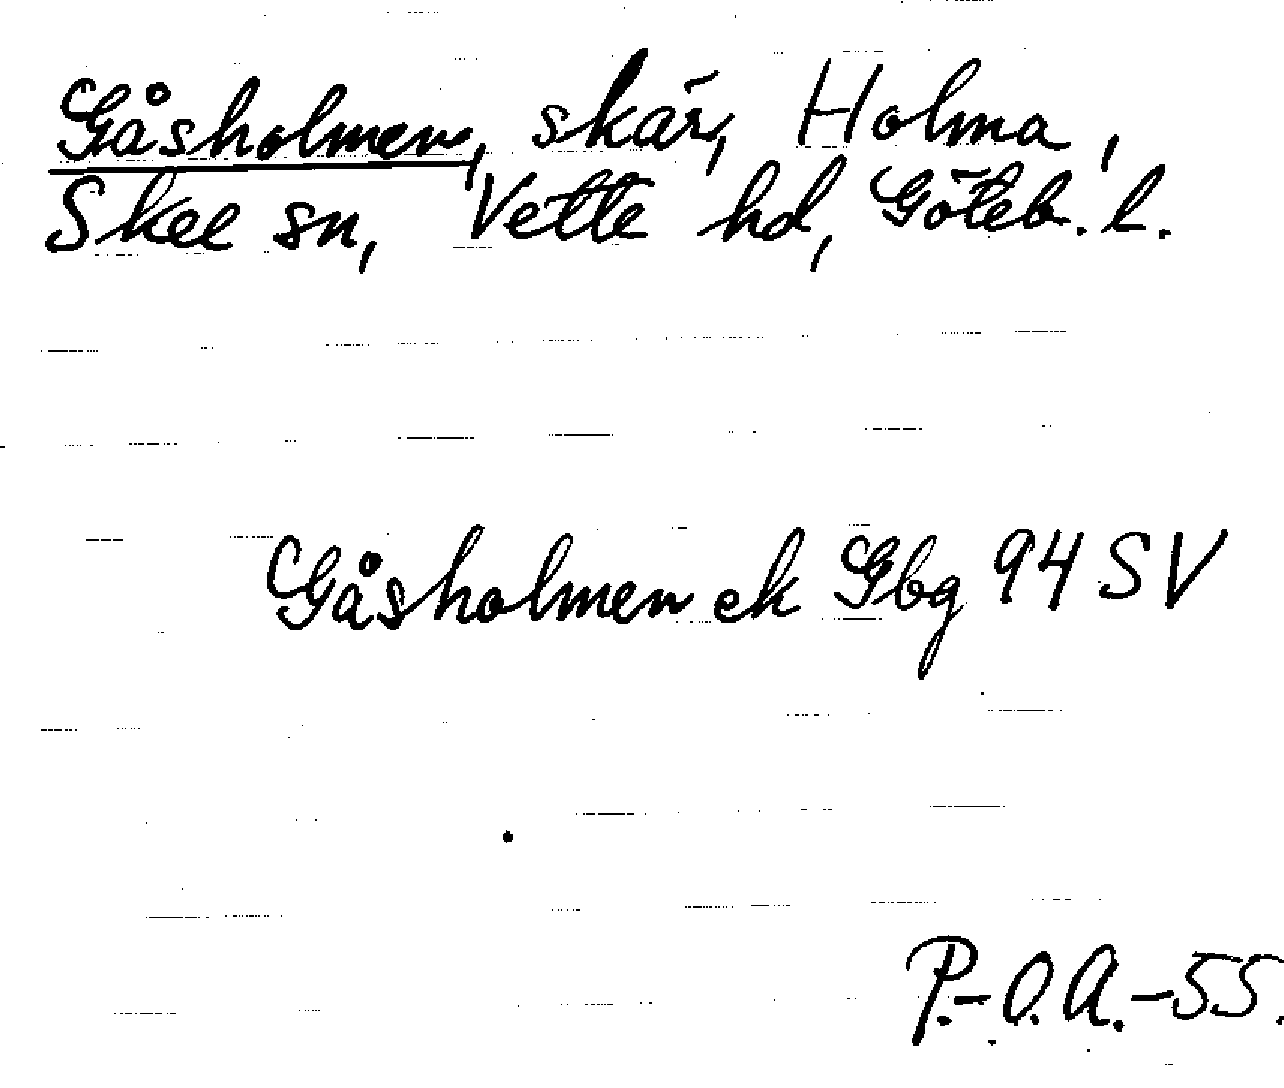 Gåsholmen, skär, Holma,
Skee sn, Vette hd, Göteb. l.
Gåsholmen ek Gbg 94 SV
P.-O.A.-55.